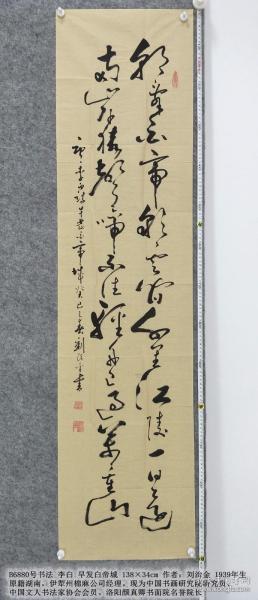 朝辞白帝彩云间千里江陵一日还
两岸猿声啼不住轻舟已过万重山
李白诗早发白帝城癸巳之 劉治金書
B6880号书法 李白 早发白帝城 138×34cm 作者：刘治金 1939年生
原籍湖南，伊犁州棉麻公司经理。现为中国书画研究院研究员，
中国文人书法家协会会员，洛阳颜真卿书画院名誉院长